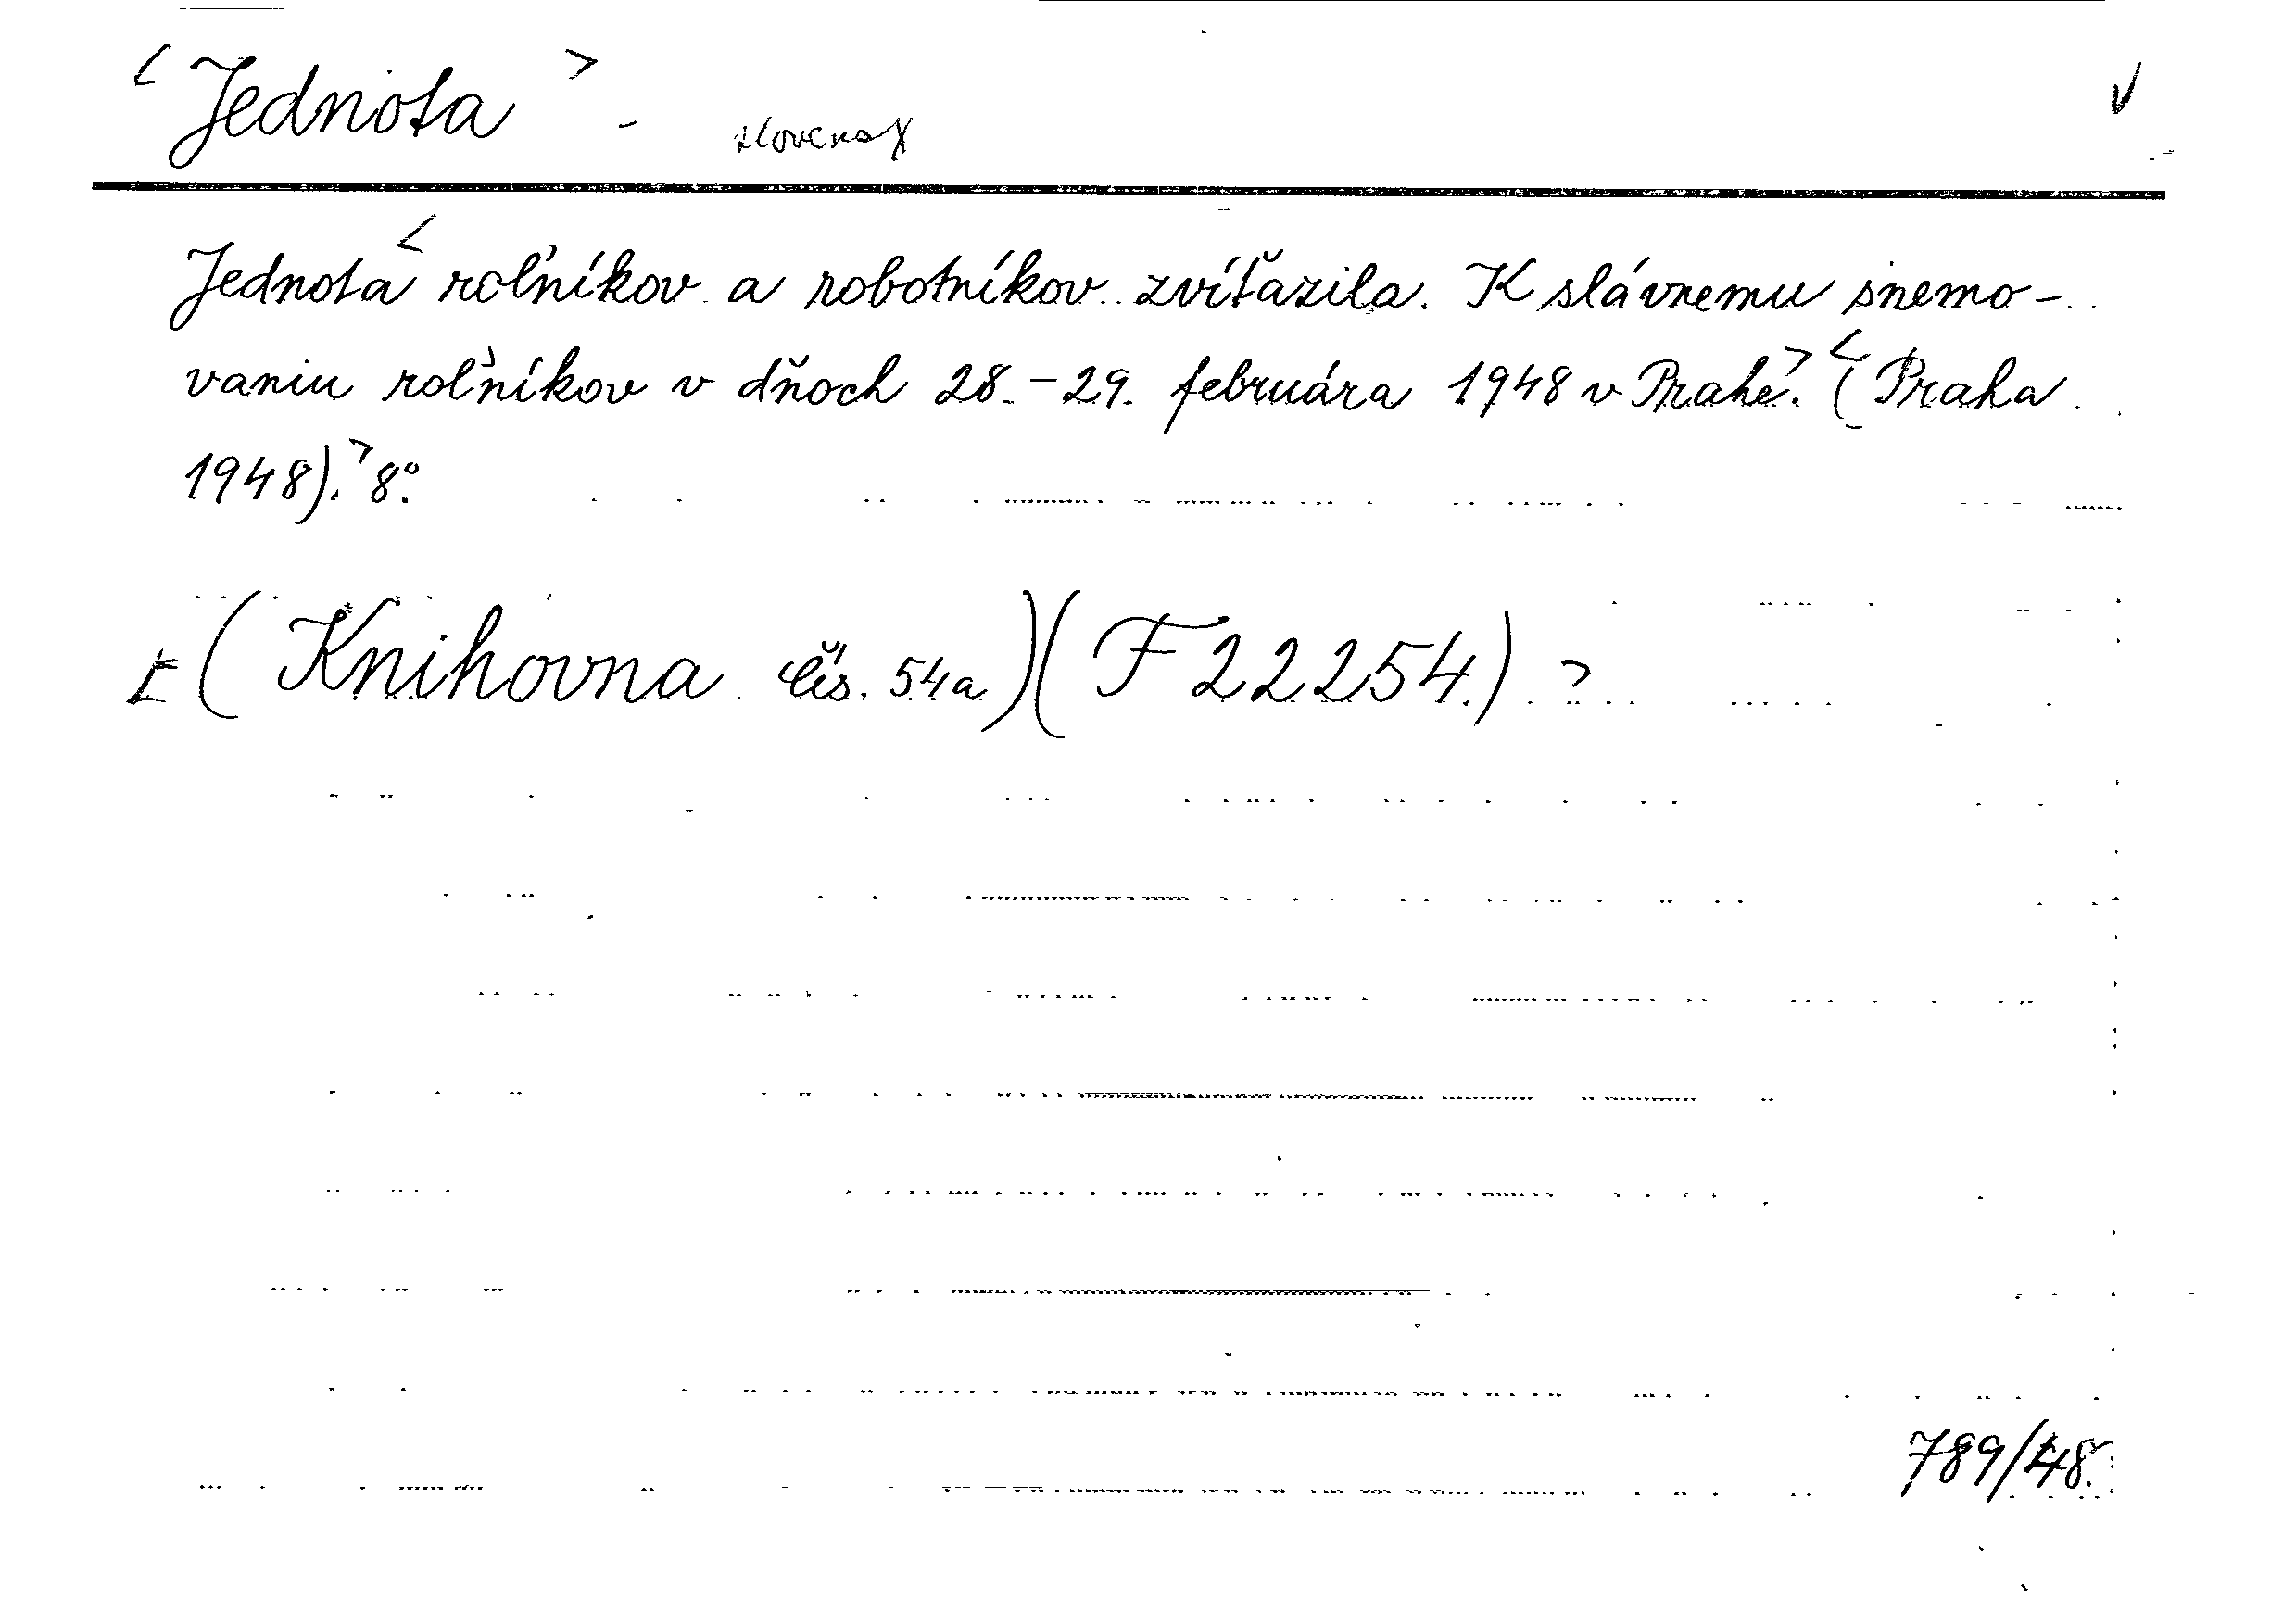 < Jednota > -
Jednota < roľníkov a robotníkov zvíťazila. K slávnemu snemo-
vaniu roľníkov v dňoch 28.-29. februára 1948 v Prahe.> <(Praha
1948).> 8°.
(Knihovna čís. 54a)(F 22254.) >
789/48.